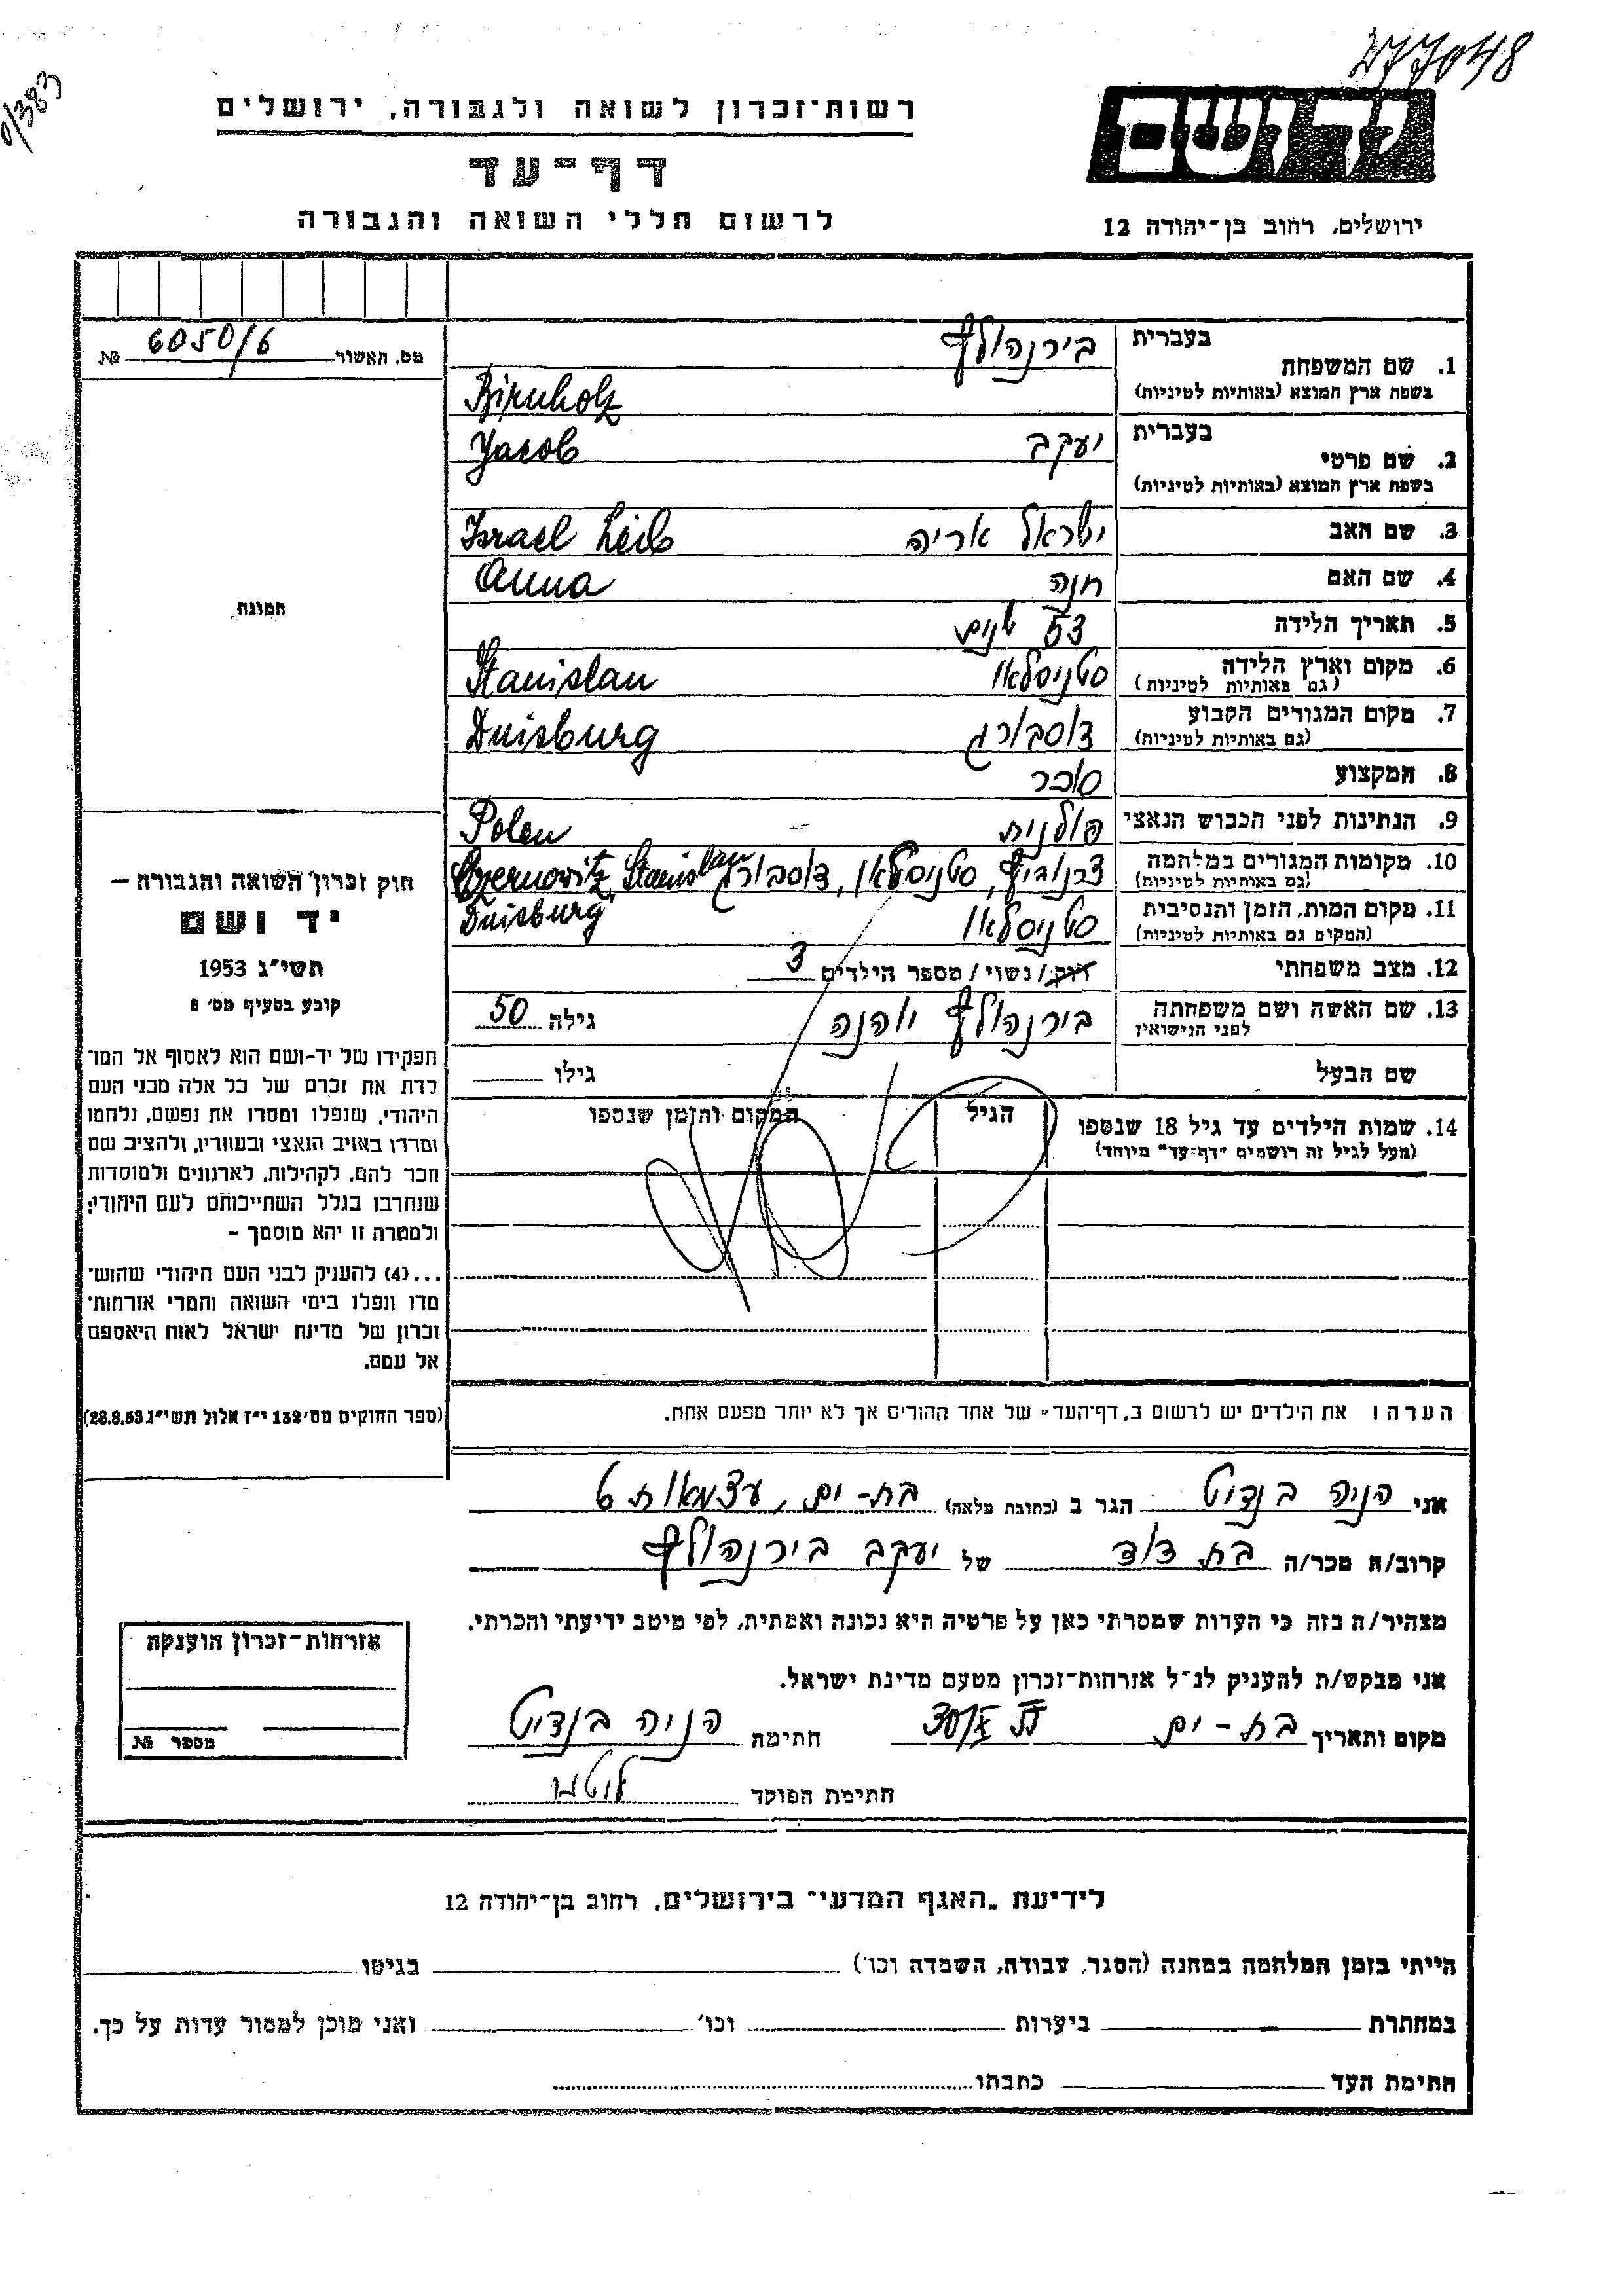 277048
0/383
רשות־זכרון לשואה ולגבורה, ירושלים
דף־עד
לרשום חללי השואה והגבורה
ידושם
ירושלים, רחוב בן־יהודה 12
מס. האשור 6050/6 №
1. שם המשפחה בעברית בירנהולץ
בשפת ארץ המוצא (באותיות לטיניות) Birnholz
2. שם פרטי בעברית יעקב Yacob
בשפת ארץ המוצא (באותיות לטיניות)
3. שם האב ישראל אריה Israel Leib
4. שם האם חנה Anna
5. תאריך הלידה 53 שנים
6. מקום וארץ הלידה סטניסלאו Stanislau
(גם באותיות לטיניות)
7. מקום המגורים הקבוע דוסבורג Duisburg
(גם באותיות לטיניות)
8. המקצוע סוכר
9. הנתינות לפני הכבוש הנאצי פולנית Polen
10. מקומות המגורים במלחמה צרנוביץ, סטניסלאו, דוסבורג Czernovitz, Stanislau
(גם באותיות לטיניות) Duisburg
11. מקום המות, הזמן והנסיבות סטניסלאו
(המקום גם באותיות לטיניות)
12. מצב משפחתי רוק/נשוי/מספר הילדים 3
13. שם האשה ושם משפחתה בירנהולץ יוהנה גילה 50
לפני הנישואין
שם הבעל גילו
14. שמות הילדים עד גיל 18 שנספו הגיל המקום והזמן שנספו
(מעל לגיל זה רושמים "דף־עד" מיוחד)
תמונה
חוק זכרון השואה והגבורה —
יד ושם
תשי"ג 1953
קובע בסעיף מס׳ 2
תפקידו של יד-ושם הוא לאסוף אל המו־
לדת את זכרם של כל אלה מבני העם
היהודי, שנפלו ומסרו את נפשם, נלחמו
ומרדו באויב הנאצי ובעוזריו, ולהציב שם
וזכר להם, לקהילות, לארגונים ולמוסדות
שנחרבו בגלל השתייכותם לעם היהודי;
ולמטרה זו יהא מוסמך —
...(4) להעניק לבני העם היהודי שהוש־
מדו ונפלו בימי השואה והמרי אזרחות־
זכרון של מדינת ישראל לאות היאספם
אל עמם.
(ספר החוקים מס׳ 132 י"ז אלול תשי"ג 28.8.53)
הערה: את הילדים יש לרשום ב„דף־העד" של אחד ההורים אך לא יותר מפעם אחת.
אני הניה בנדיט הגר ב (כתובת מלאה) בת-ים, עצמאות 6
קרוב/ה מכר/ה בת דוד של יעקב בירנהולץ
מצהיר/ה בזה כי העדות שמסרתי כאן על פרטיה היא נכונה ואמתית, לפי מיטב ידיעתי והכרתי.
אני מבקש/ת להעניק לנ"ל אזרחות־זכרון מטעם מדינת ישראל.
מקום ותאריך בת-ים חתימה הניה בנדיט
חתימת הפוקד
אזרחות־זכרון הוענקה
מספר №
לידיעת „האגף המדעי" בירושלים, רחוב בן־יהודה 12
הייתי בזמן המלחמה במחנה (הסגר, עבודה, השמדה וכו׳) בגיטו
במחתרת ביערות וכו׳ ואני מוכן למסור עדות על כך.
חתימת העד כתבתו